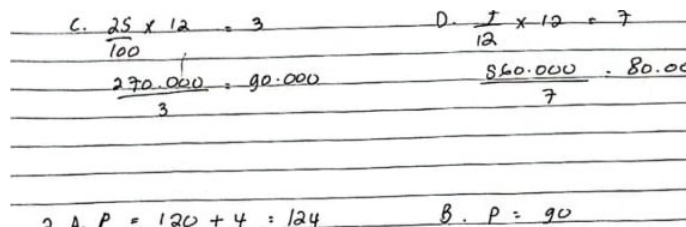 C. 25/100 x 12 = 3
270.000/3 = 90.000
D. 7/12 x 12 = 7
560.000/7 = 80.00
2. A. P = 120 + 4 = 124
B. P = 90